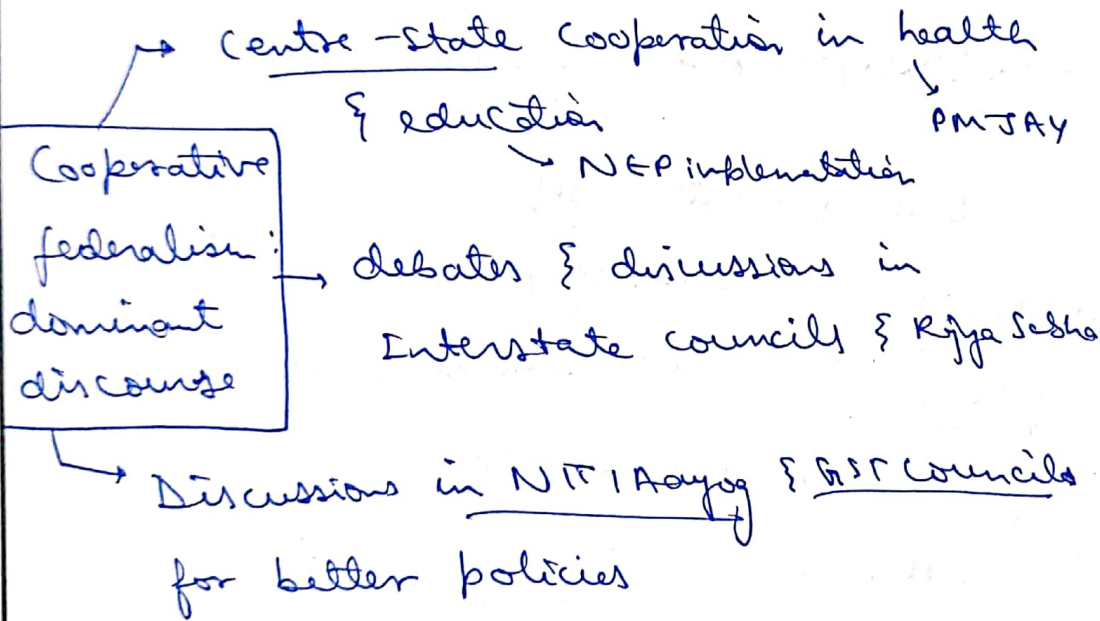 Centre-state cooperation in health
& education
PMJAY
NEP implementation
Cooperative
federalism:
dominant
discourse
debates & discussions in
Interstate councils & Rajya Sabha
Discussions in NITI Aayog & GST Councils
for better policies